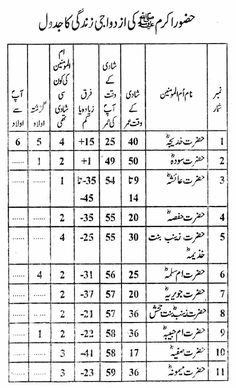 حضور اکرم ﷺ کی ازدواجی زندگی کا جدول
نمبر شمار نام ام المومنین شادی کے وقت عمر آپؐ کی شادی کے وقت عمر فرق زیادہ یا کم ام المومنین کی کون سی شادی تھی گزشتہ اولاد آپؐ سے اولاد
1 حضرت خدیجہؓ 40 25 +15 4 5 6
2 حضرت سودہؓ 50 49 +1 2 1 .....
3 حضرت عائشہؓ 9 تا 54 -35 تا 1 ..... .....
14 -45
4 حضرت حفصہؓ 20 55 -35 2 ..... .....
5 حضرت زینب بنت 30 55 -25 4 ..... .....
خذیمہؓ
6 حضرت ام سلمہؓ 25 56 -31 2 4 .....
7 حضرت جویریہؓ 20 57 -37 2 ..... .....
8 حضرت زینب بنت جحشؓ 36 58 -22 2 ..... .....
9 حضرت ام حبیبہؓ 36 58 -22 2 1 .....
10 حضرت صفیہؓ 17 58 -41 3 ..... .....
11 حضرت میمونہؓ 36 59 -23 3 ..... .....